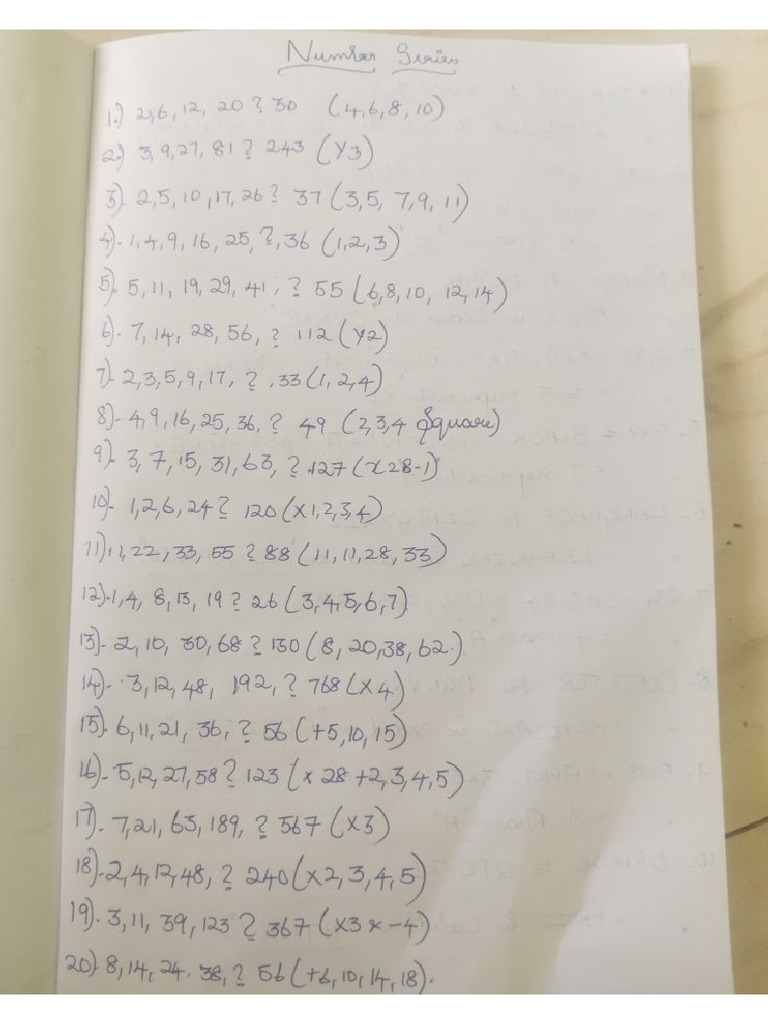 Number Series
1.) 2,6, 12, 20 ? 30 (4,6, 8, 10)
2.) 3,9,27, 81 ? 243 (Y3)
3). 2,5, 10, 17, 26 ? 37 (3,5, 7,9, 11)
4). 1,4,9, 16, 25, ?, 36 (1,2,3)
5). 5, 11, 19, 29, 41, ? 55 (6,8,10, 12,14)
6). 7, 14, 28, 56, ? 112 (Y2)
7). 2,3,5,9,17, ? , 33 (1, 2,4)
8). 4,9,16, 25, 36, ? 49 (2,3,4 Square)
9). 3, 7, 15, 31, 63, ? 127 (x28-1)
10). 1,2,6, 24 ? 120 (x1,2,3,4)
11) 11, 22, 33, 55 ? 88 (11, 11,28, 33)
12). 1, 4, 8, 13, 19 ? 26 (3,4,5,6,7)
13). 2, 10, 30, 68 ? 130 (8, 20,38, 62.)
14). 3, 12, 48, 192, ? 768 (x4)
15). 6, 11, 21, 36, ? 56 (+5, 10, 15)
16). 5,12, 27, 58 ? 123 (x 28 +2,3,4,5)
17). 7,21, 63, 189, ? 567 (x3)
18). 2, 4, 12, 48, ? 240 (x2, 3, 4, 5)
19). 3, 11, 39, 123 ? 367 (x3 x -4)
20). 8, 14, 24. 38, ? 56 (+6, 10, 14, 18).